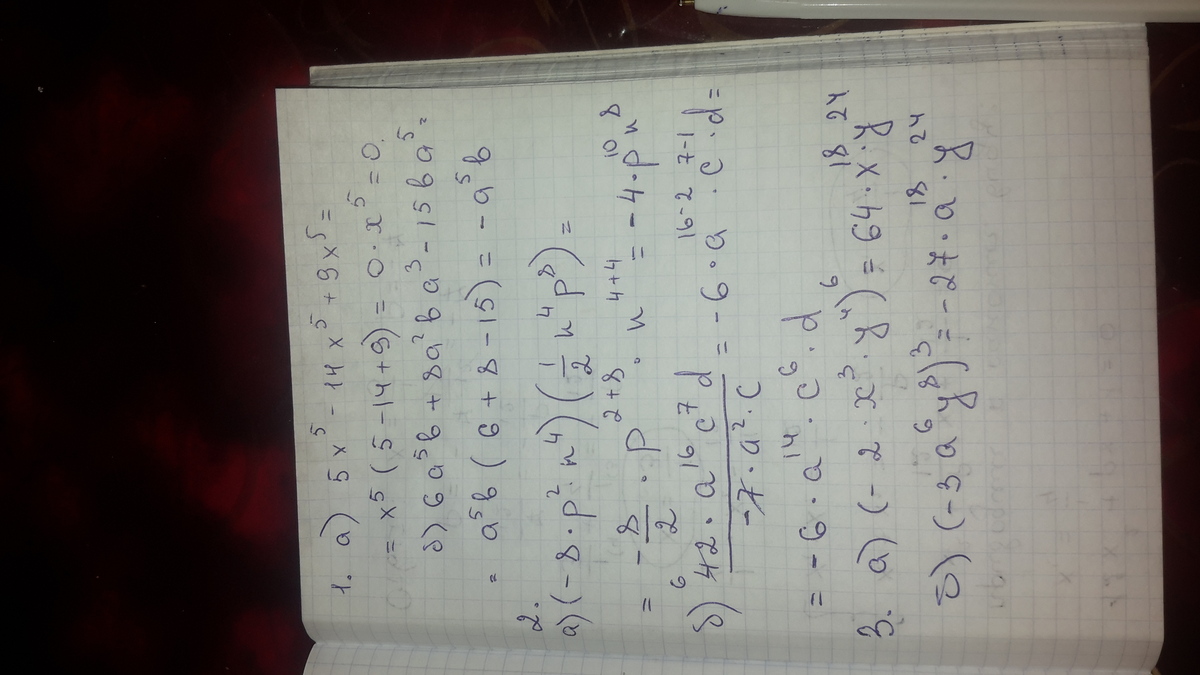 1. а) 5x⁵ - 14x⁵ + 9x⁵ =
= x⁵ (5 - 14 + 9) = 0 · x⁵ = 0.
б) 6a⁵b + 8a²ba³ - 15ba⁵ =
= a⁵b (6 + 8 - 15) = - a⁵b
2.
а) (-8 · p² · n⁴) (1/2 n⁴ p⁸) =
= -8/2 · p²⁺⁸ · n⁴⁺⁴ = -4 · p¹⁰ n⁸
б) ⁶42 · a¹⁶ c⁷ d / -7 · a² · c = -6 · a¹⁶⁻² · c⁷⁻¹ · d =
= -6 · a¹⁴ · c⁶ · d
3. а) (-2 · x³ · y⁴)⁶ = 64 · x¹⁸ · y²⁴.
б) (-3 a⁶ y⁸)³ = -27 · a¹⁸ · y²⁴